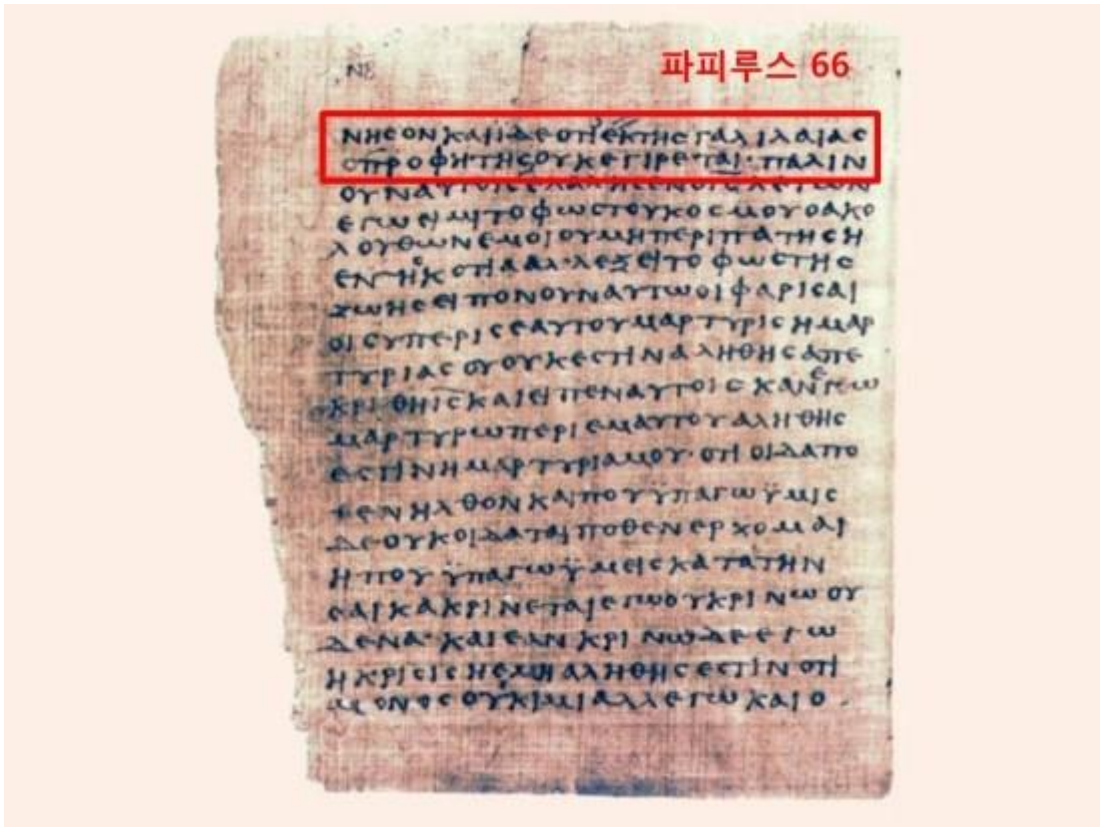 ΝΕ
파피루스 66
ΝΗϹΟΝΚΑΙΙΔΕΟΤΙΕΚΤΗϹΓΑΛΙΛΑΙΑϹ
ΟΠΡΟΦΗΤΗϹΟΥΚΕΓΙΡΕΤΑΙ·ΠΑΛΙΝ
ΟΥΝΑΥΤΟΙϹΕΛΑΛΗϹΕΝΟΙϹΛΕΓΩΝ
ΕΓΩΕΙΜΙΤΟΦΩϹΤΟΥΚΟϹΜΟΥΟΑΚΟ
ΛΟΥΘΩΝΕΜΟΙΟΥΜΗΠΕΡΙΠΑΤΗϹΗ
ΕΝΤΗϹΚΟΤΙΑΑΛΛΕΞΕΙΤΟΦΩϹΤΗϹ
ΖΩΗϹΕΙΠΟΝΟΥΝΑΥΤΩΟΙΦΑΡΙϹΑΙ
ΟΙϹΥΠΕΡΙϹΕΑΥΤΟΥΜΑΡΤΥΡΙϹΗΜΑΡ
ΤΥΡΙΑϹΟΥΟΥΚΕϹΤΙΝΑΛΗΘΗϹΑΠΕ
ΚΡΙΘΗΙϹΚΑΙΕΙΠΕΝΑΥΤΟΙϹΚΑΝΕΓΩ
ΜΑΡΤΥΡΩΠΕΡΙΕΜΑΥΤΟΥΑΛΗΘΗϹ
ΕϹΤΙΝΗΜΑΡΤΥΡΙΑΜΟΥ·ΟΤΙΟΙΔΑΠΟ
ΘΕΝΗΛΘΟΝΚΑΙΠΟΥΫΠΑΓΩΫΜΙϹ
ΔΕΟΥΚΟΙΔΑΤΑΙΠΟΘΕΝΕΡΧΟΜΑΙ
ΗΠΟΥΫΠΑΓΩΫΜΕΙϹΚΑΤΑΤΗΝ
ϹΑΡΚΑΚΡΙΝΕΤΑΙΕΓΩΟΥΚΡΙΝΩΟΥ
ΔΕΝΑ·ΚΑΙΕΑΝΚΡΙΝΩΔΕΕΓΩ
ΗΚΡΙϹΙϹΗΕΜΗΑΛΗΘΗϹΕϹΤΙΝΟΤΙ
ΜΟΝΟϹΟΥΚΙΜΙΑΛΛΕΓΩΚΑΙΟ